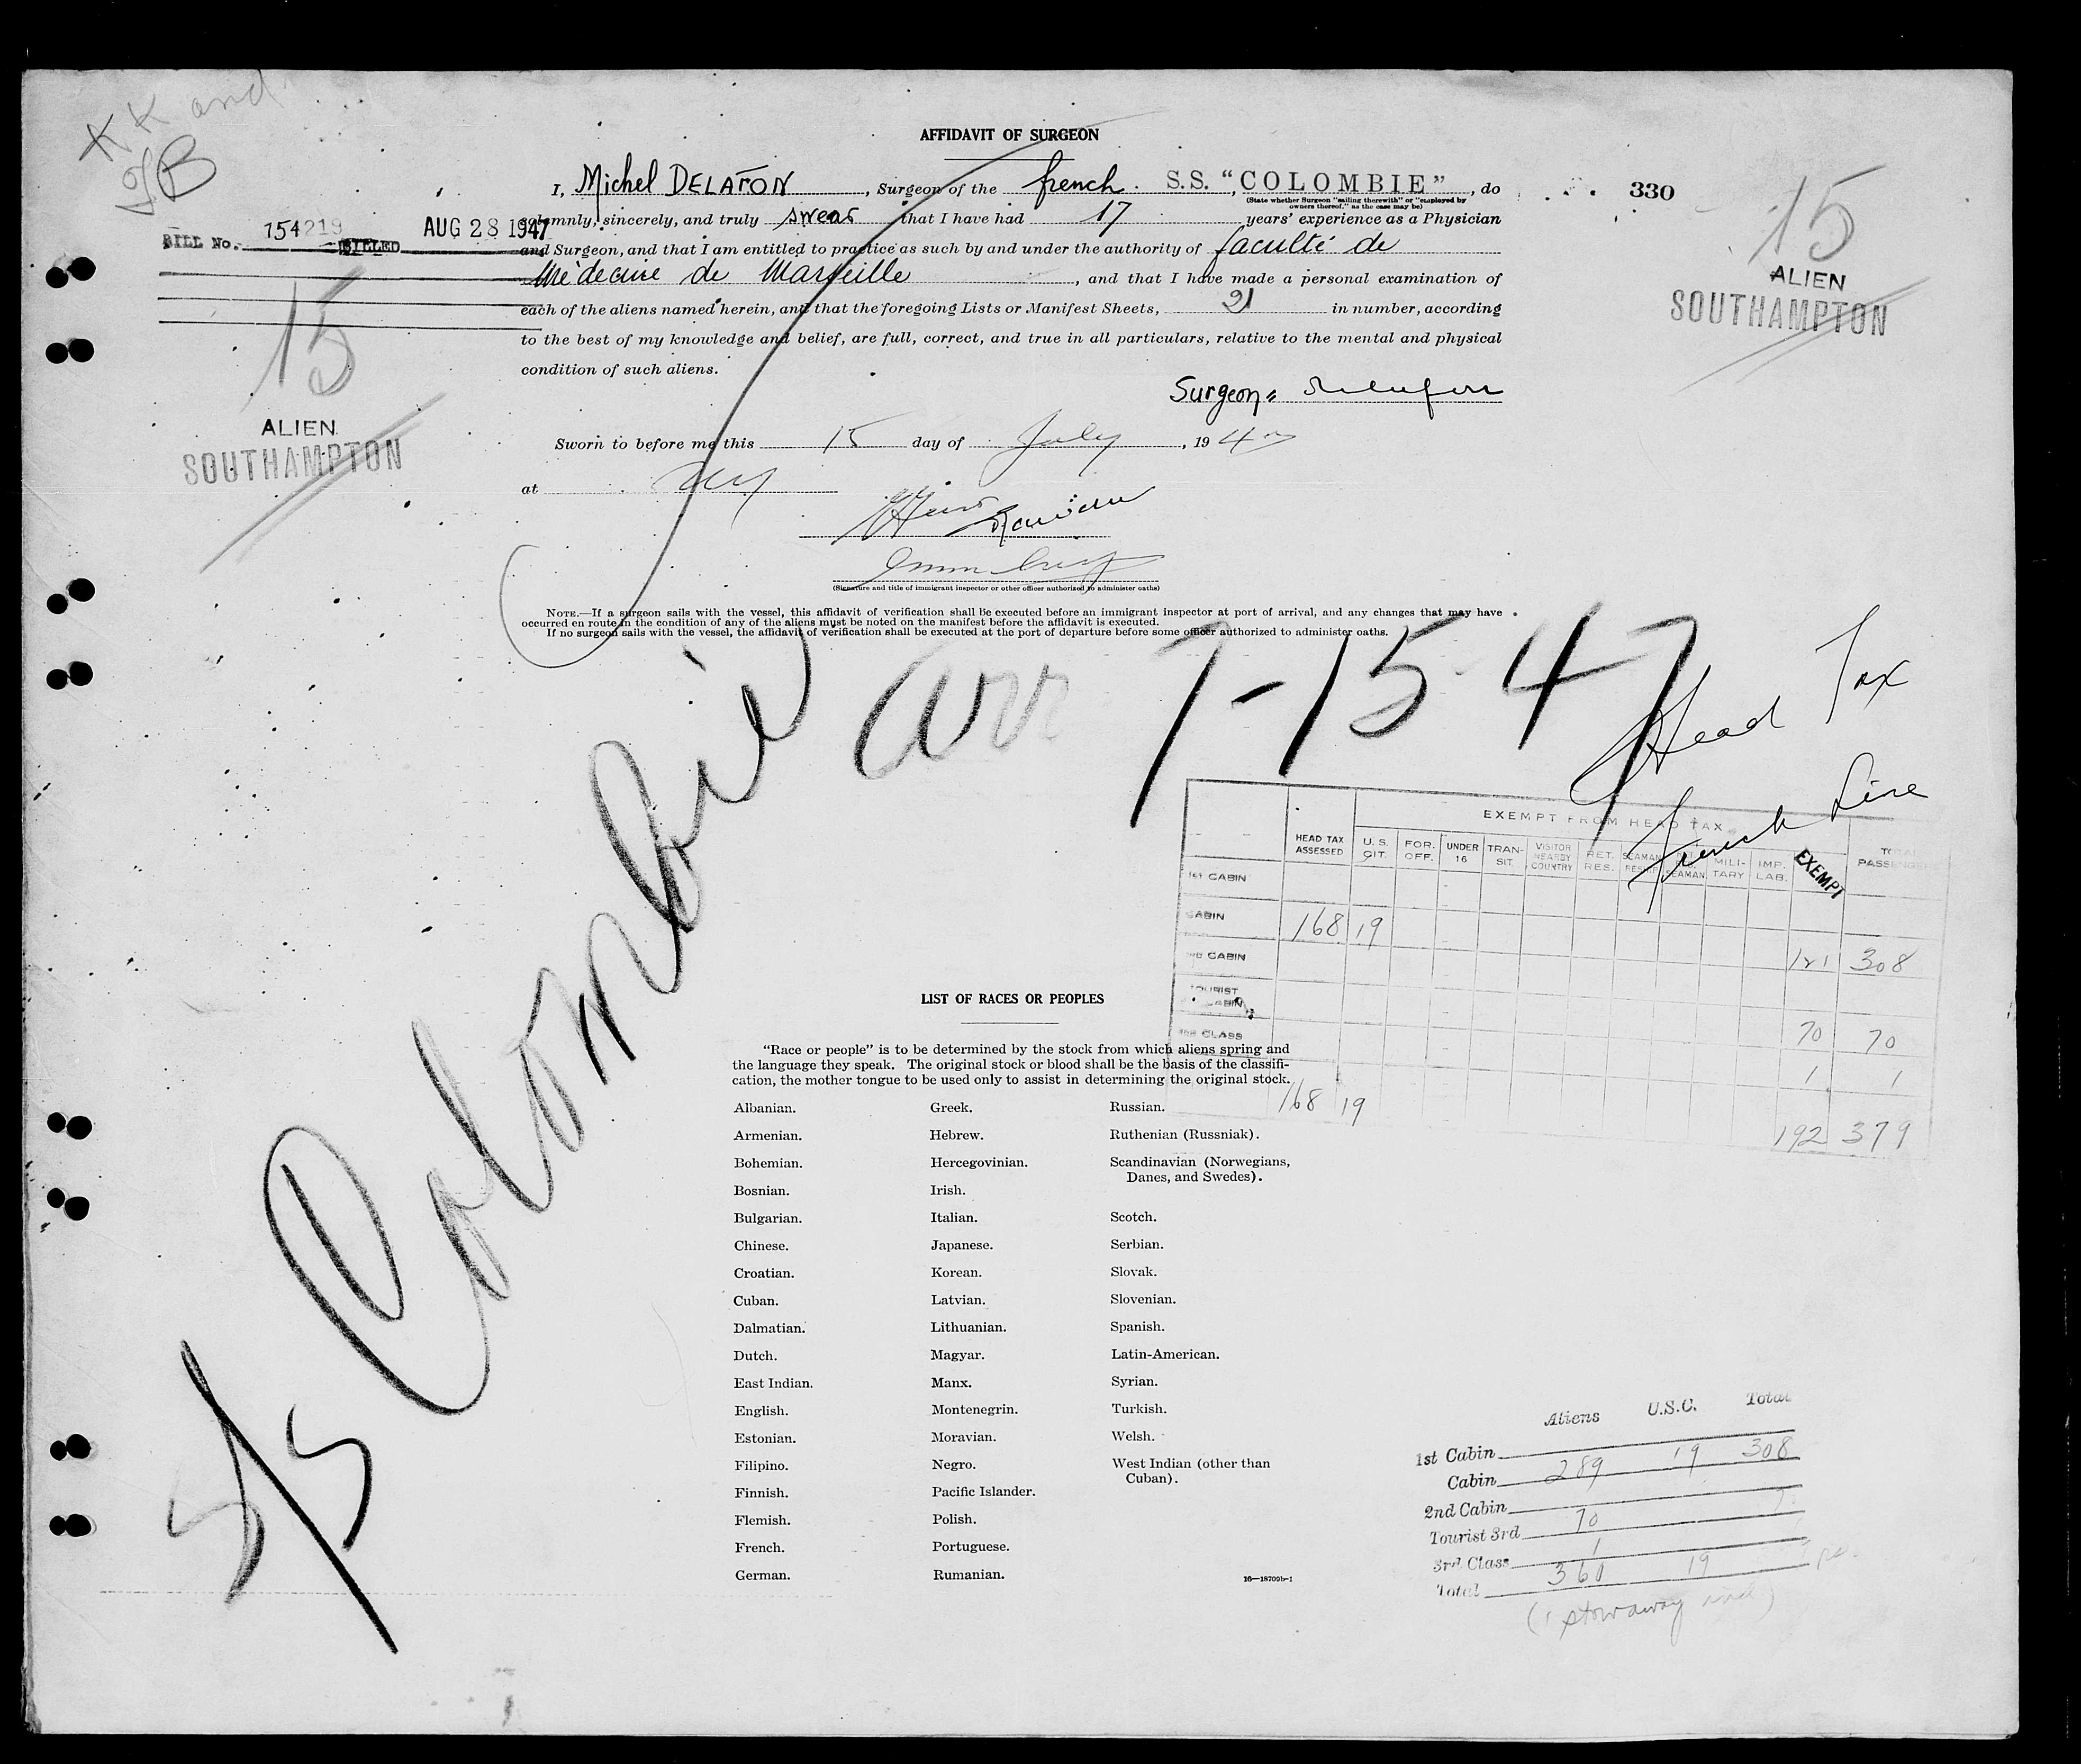 KK and
TB
AFFIDAVIT OF SURGEON
I, Michel DELAFON, Surgeon of the french. S.S. "COLOMBIE", do
(State whether Surgeon "sailing therewith" or "employed by owners thereof," as the case may be)
330
15
ALIEN
SOUTHAMPTON
BILL No. 154219 BILLED AUG 28 1947
solemnly, sincerely, and truly swear that I have had 17 years' experience as a Physician
and Surgeon, and that I am entitled to practice as such by and under the authority of faculté de
Médecine de Marseille, and that I have made a personal examination of
each of the aliens named herein, and that the foregoing Lists or Manifest Sheets, 21 in number, according
to the best of my knowledge and belief, are full, correct, and true in all particulars, relative to the mental and physical
condition of such aliens.
15
ALIEN
SOUTHAMPTON
Surgeon
Sworn to before me this 15 day of July, 1947
at NY
(Signature and title of immigrant inspector or other officer authorized to administer oaths)
NOTE.—If a surgeon sails with the vessel, this affidavit of verification shall be executed before an immigrant inspector at port of arrival, and any changes that may have
occurred en route in the condition of any of the aliens must be noted on the manifest before the affidavit is executed.
If no surgeon sails with the vessel, the affidavit of verification shall be executed at the port of departure before some officer authorized to administer oaths.
arr 7-15-47
Head Tax
French Line
S/S Colombie
EXEMPT FROM HEAD TAX
HEAD TAX ASSESSED U.S. CIT. FOR. OFF. UNDER 16 TRANSIT VISITOR NEARBY COUNTRY RET. RES. SEAMAN SEAMAN MILITARY IMP. LAB. EXEMPT TOTAL PASSENGERS
1st CABIN
CABIN 168 19 121 308
2nd CABIN
TOURIST CABIN 70 70
3rd CLASS 1 1
168 19 192 379
LIST OF RACES OR PEOPLES
"Race or people" is to be determined by the stock from which aliens spring and
the language they speak. The original stock or blood shall be the basis of the classifi-
cation, the mother tongue to be used only to assist in determining the original stock.
Albanian. Greek. Russian.
Armenian. Hebrew. Ruthenian (Russniak).
Bohemian. Hercegovinian. Scandinavian (Norwegians,
Danes, and Swedes).
Bosnian. Irish.
Bulgarian. Italian. Scotch.
Chinese. Japanese. Serbian.
Croatian. Korean. Slovak.
Cuban. Latvian. Slovenian.
Dalmatian. Lithuanian. Spanish.
Dutch. Magyar. Latin-American.
East Indian. Manx. Syrian.
English. Montenegrin. Turkish.
Estonian. Moravian. Welsh.
Filipino. Negro. West Indian (other than
Cuban).
Finnish. Pacific Islander.
Flemish. Polish.
French. Portuguese.
German. Rumanian.
16—18709b-1
Aliens U.S.C. Total
1st Cabin
Cabin 289 19 308
2nd Cabin
Tourist 3rd 70
3rd Class 1
Total 360 19
(1 stowaway incl)